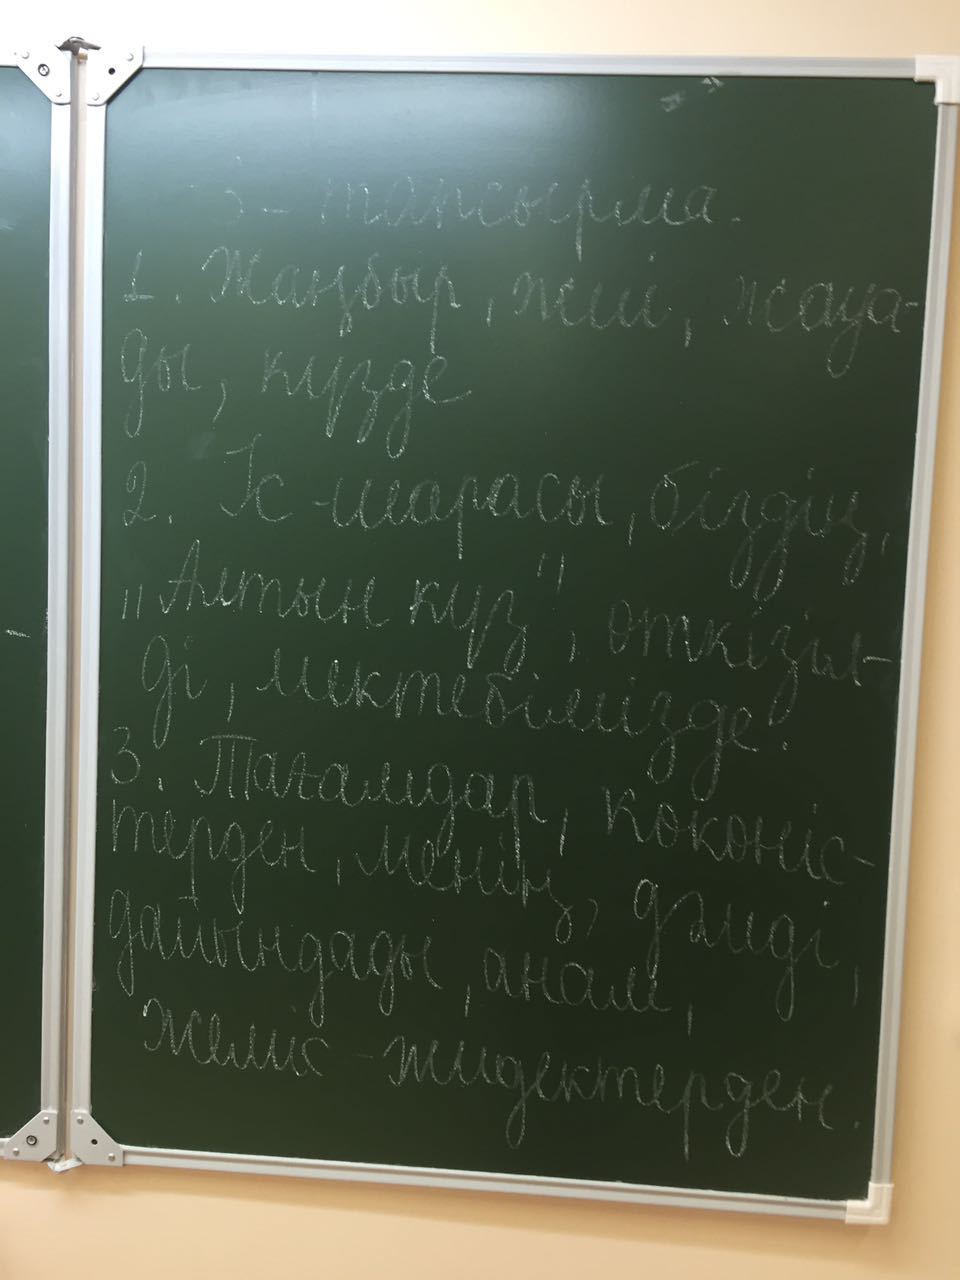 3 - тапсырма.
1. Жаңбыр, жиі, жауа-
ды, күзде
2. Іс - шарасы, біздің,
"Алтын күз", өткізіл-
ді, мектебімізде.
3. Тағамдар, көкөніс-
терден, менің, дәмді,
дайындады, анам,
жеміс - жидектерден.